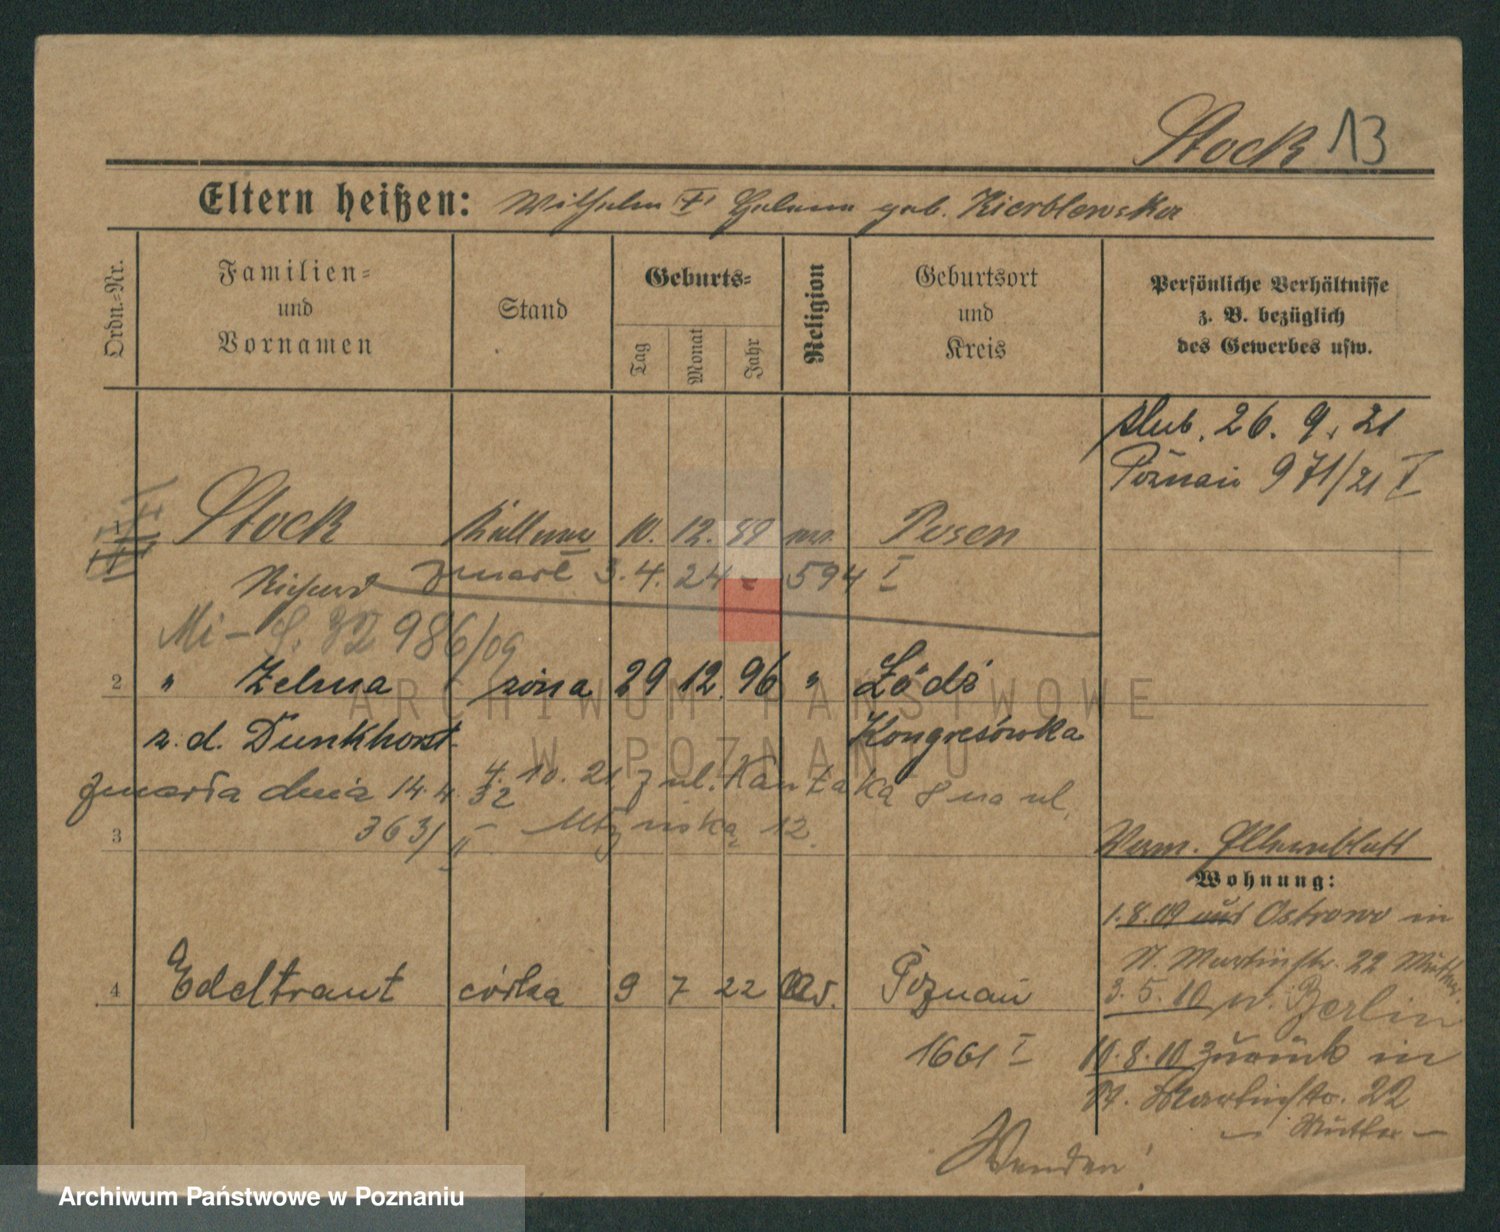 Stock 13
Eltern heißen: Wilhelm † Helene geb. Kierblewska
Ordn.=Nr.
Familien=
und
Vornamen
Stand
Geburts=
Tag
Monat
Jahr
Religion
Geburtsort
und
Kreis
Persönliche Verhältnisse
z. B. bezüglich
des Gewerbes usw.
ślub. 26. 9. 21
Poznań 971/21 I
1 Stock Kellner 10. 12. 89 Posen
Richard zmarł 3. 4. 24 - 594 I
986/09
2 " Zelma żona 29 12. 96 " Łódź
z. d. Dunkhorst Kongresówka
zmarła dnia 14. 4. 32 4. 10. 21 z ul. Kantaka 8 na ul.
3 363/II 12.
Verm. Elternblatt
Wohnung:
1. 8. 09 aus Ostrowo in
St. Martinstr. 22 Mutter.
4 Edeltraut córka 9 7 22 ev. Poznań
3. 5. 10 n. Berlin
1661 I
10. 8. 10 zurück in
St. Martinstr. 22
— Mutter —
Wenden!
ARCHIWUM PAŃSTWOWE
W POZNANIU
Archiwum Państwowe w Poznaniu